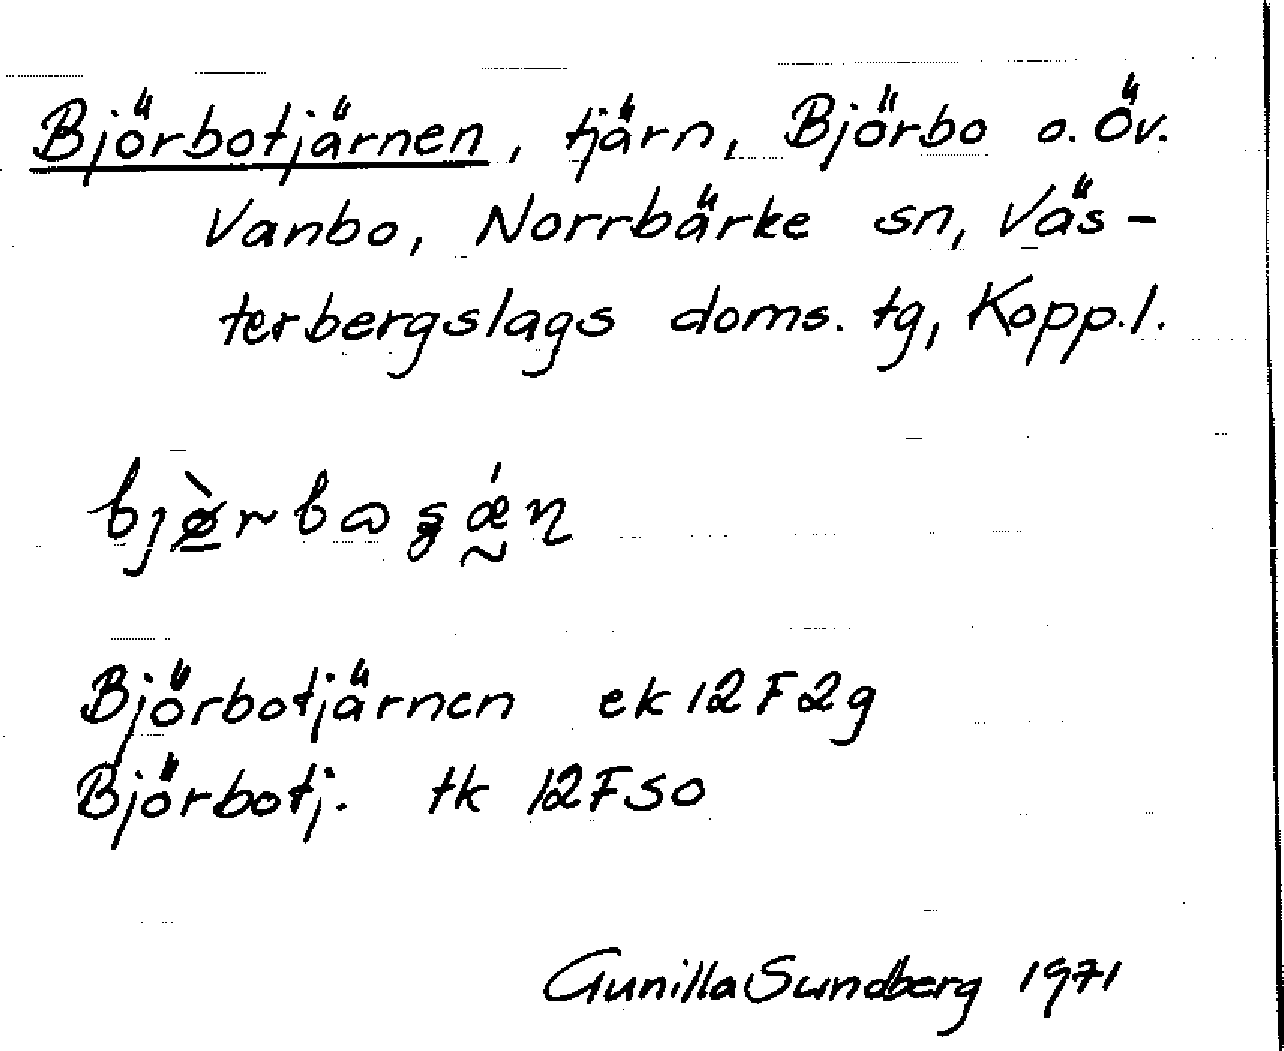 Björbotjärnen, tjärn, Björbo o. Öv.
Vanbo, Norrbärke sn, Väs-
terbergslags doms. tg, Kopp.l.
Björbotjärnen ek 12F2g
Björbotj. tk 12FSO
Gunilla Sundberg 1971